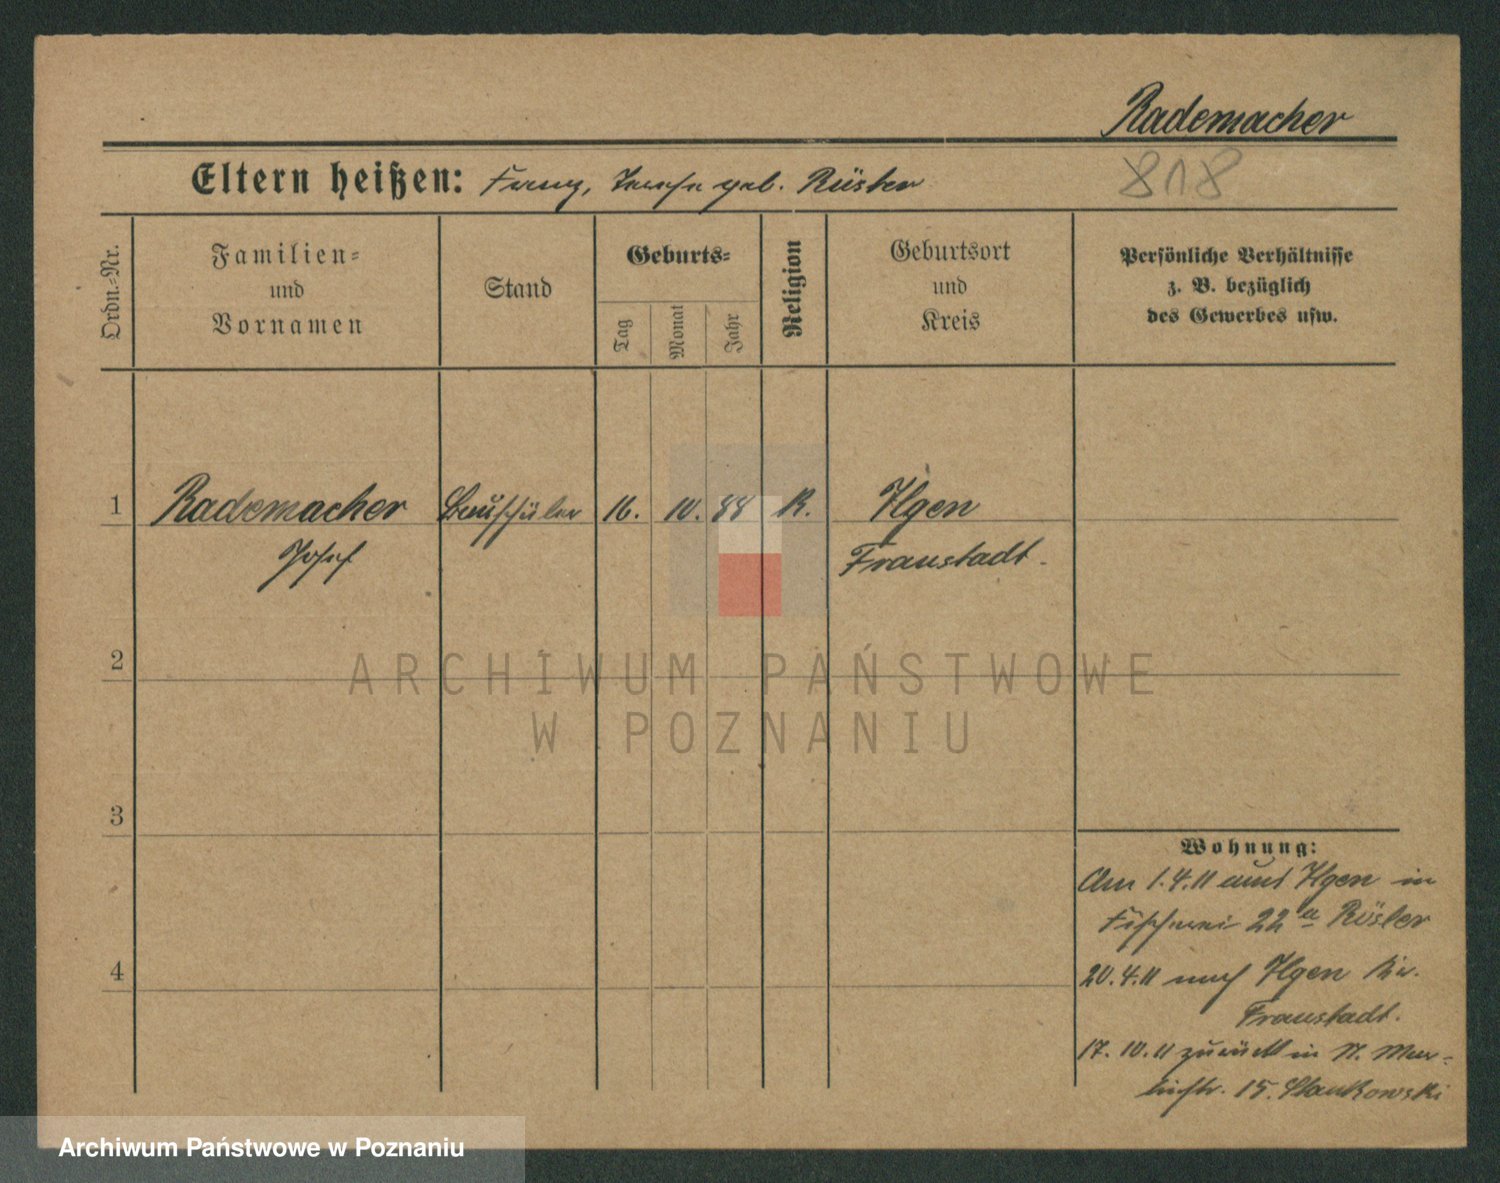 Rademacher
818
Eltern heißen: Franz, geb. Rösler
Ordn.-Nr.
Familien-
und
Vornamen
Stand
Geburts-
Tag
Monat
Jahr
Religion
Geburtsort
und
Kreis
Persönliche Verhältnisse
z. B. bezüglich
des Gewerbes usw.
1 Rademacher Bauschüler 16. 10. 88 R. Ilgen
Josef Fraustadt.
2
3
4
Wohnung:
Am 1.4.11 aus Ilgen in
Fischerei 22a Rösler
20.4.11 nach Ilgen Kr.
Fraustadt.
17.10.11 zurück in St. Mar-
tinstr. 15. Stankowski
ARCHIWUM PAŃSTWOWE
W POZNANIU
Archiwum Państwowe w Poznaniu